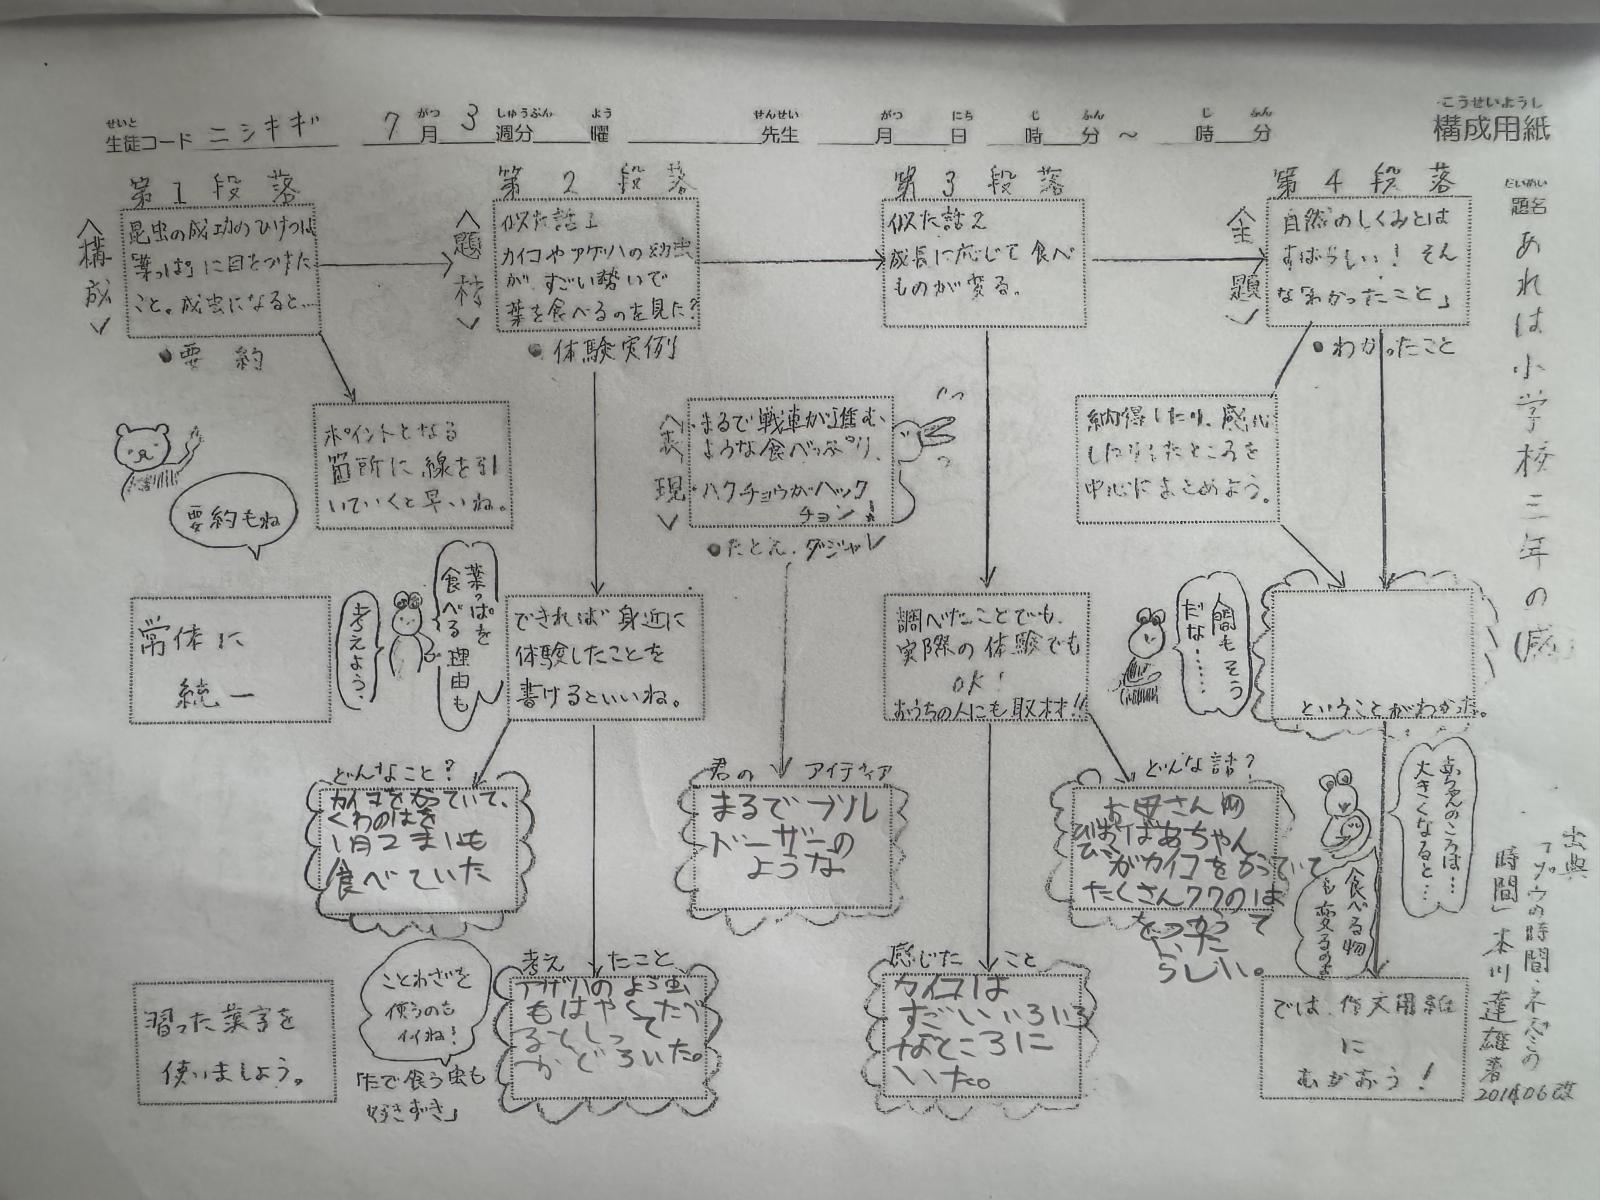 こうせいようし
構成用紙
せいと
生徒コード ニシキギ
7月3週分 曜
がつ しゅうぶん よう
せんせい
先生
がつ にち じ ふん じ ふん
月 日 時 分 ～ 時 分
だいめい
題名
あれは小学校三年の(感)
出典
「ゾウの時間・ネズミの
時間」本川達雄著
201406改
第1段落
<構成>
昆虫の成功のひけつは
「葉っぱ」に目をつけた
こと。成虫になると…
●要約
ポイントとなる
箇所に線を引
いていくと早いね。
要約もね
常体に
統一
習った漢字を
使いましょう。
第2段落
<題材>
似た話1
カイコやアゲハの幼虫
が、すごい勢いで
葉を食べるのを見た?
●体験実例
できれば身近に
体験したことを
書けるといいね。
葉っぱを
食べる理由も
考えよう。
どんなこと?
カイコをかっていて、
くわのはを
1日2まいも
食べていた
考えたこと
アゲハのよう虫
もはやくたべ
るとしって
おどろいた。
ことわざを
使うのも
イイね!
「たで食う虫も
好きずき」
<表現>
・まるで戦車が進む
ような食べっぷり。
・ハクチョウがハック
チョン!
●たとえ・ダジャレ
君のアイディア
まるでブル
ドーザーの
ような
第3段落
似た話2
成長に応じて食べ
ものが変る。
調べたことでも、
実際の体験でも
OK!
おうちの人にも取材!!
どんな話?
お母さんの
ひいおばあちゃん
がカイコをかっていて
たくさんクワのは
をつかって
いた
らしい。
感じたこと
カイコは
すごいいろいろ
なところに
いた。
第4段落
<主題>
自然のしくみとは
すばらしい! そん
な「わかったこと」
●わかったこと
納得したり、感心
したりしたところを
中心にまとめよう。
人間もそう
だな……
ということがわかった。
赤ちゃんのころは…
大きくなると…
食べる物
も変るのよ
では、作文用紙
に
むかおう!